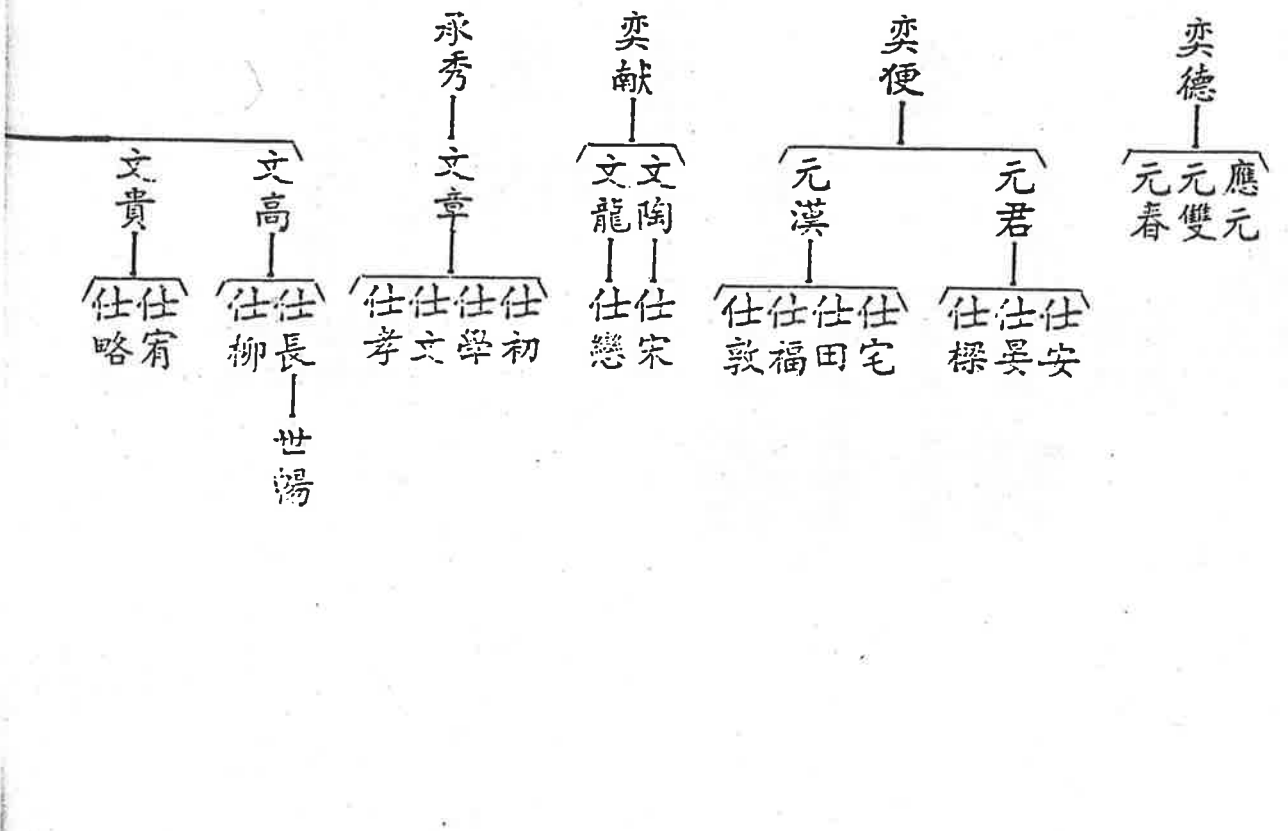 奕德
應元
元雙
元春
奕㹴
元君
仕安
仕晏
仕樑
元漢
仕宅
仕田
仕福
仕敦
奕献
文陶
仕宋
文龍
仕戀
承秀
文章
仕初
仕學
仕文
仕孝
文高
仕長
世暢
仕柳
文貴
仕宥
仕略